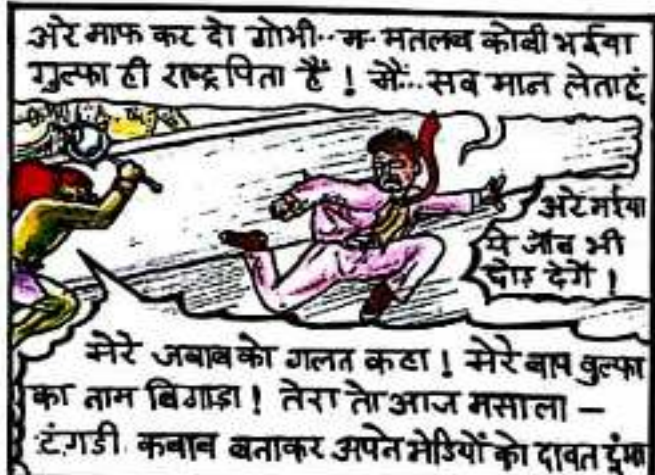 अरे माफ कर दो गोभी.. म- मतलब कोबी भईया
गुल्फा ही राष्ट्रपिता हैं ! मैं.. सब मान लेता हूं
अरे भईया
ये जॉब भी
छोड़ देंगे !
मेरे जवाब को गलत कहा ! मेरे बाप वुल्फा
का नाम बिगाड़ा ! तेरा तो आज मसाला –
टंगडी कबाब बनाकर अपने भेडियों को दावत दूंगा